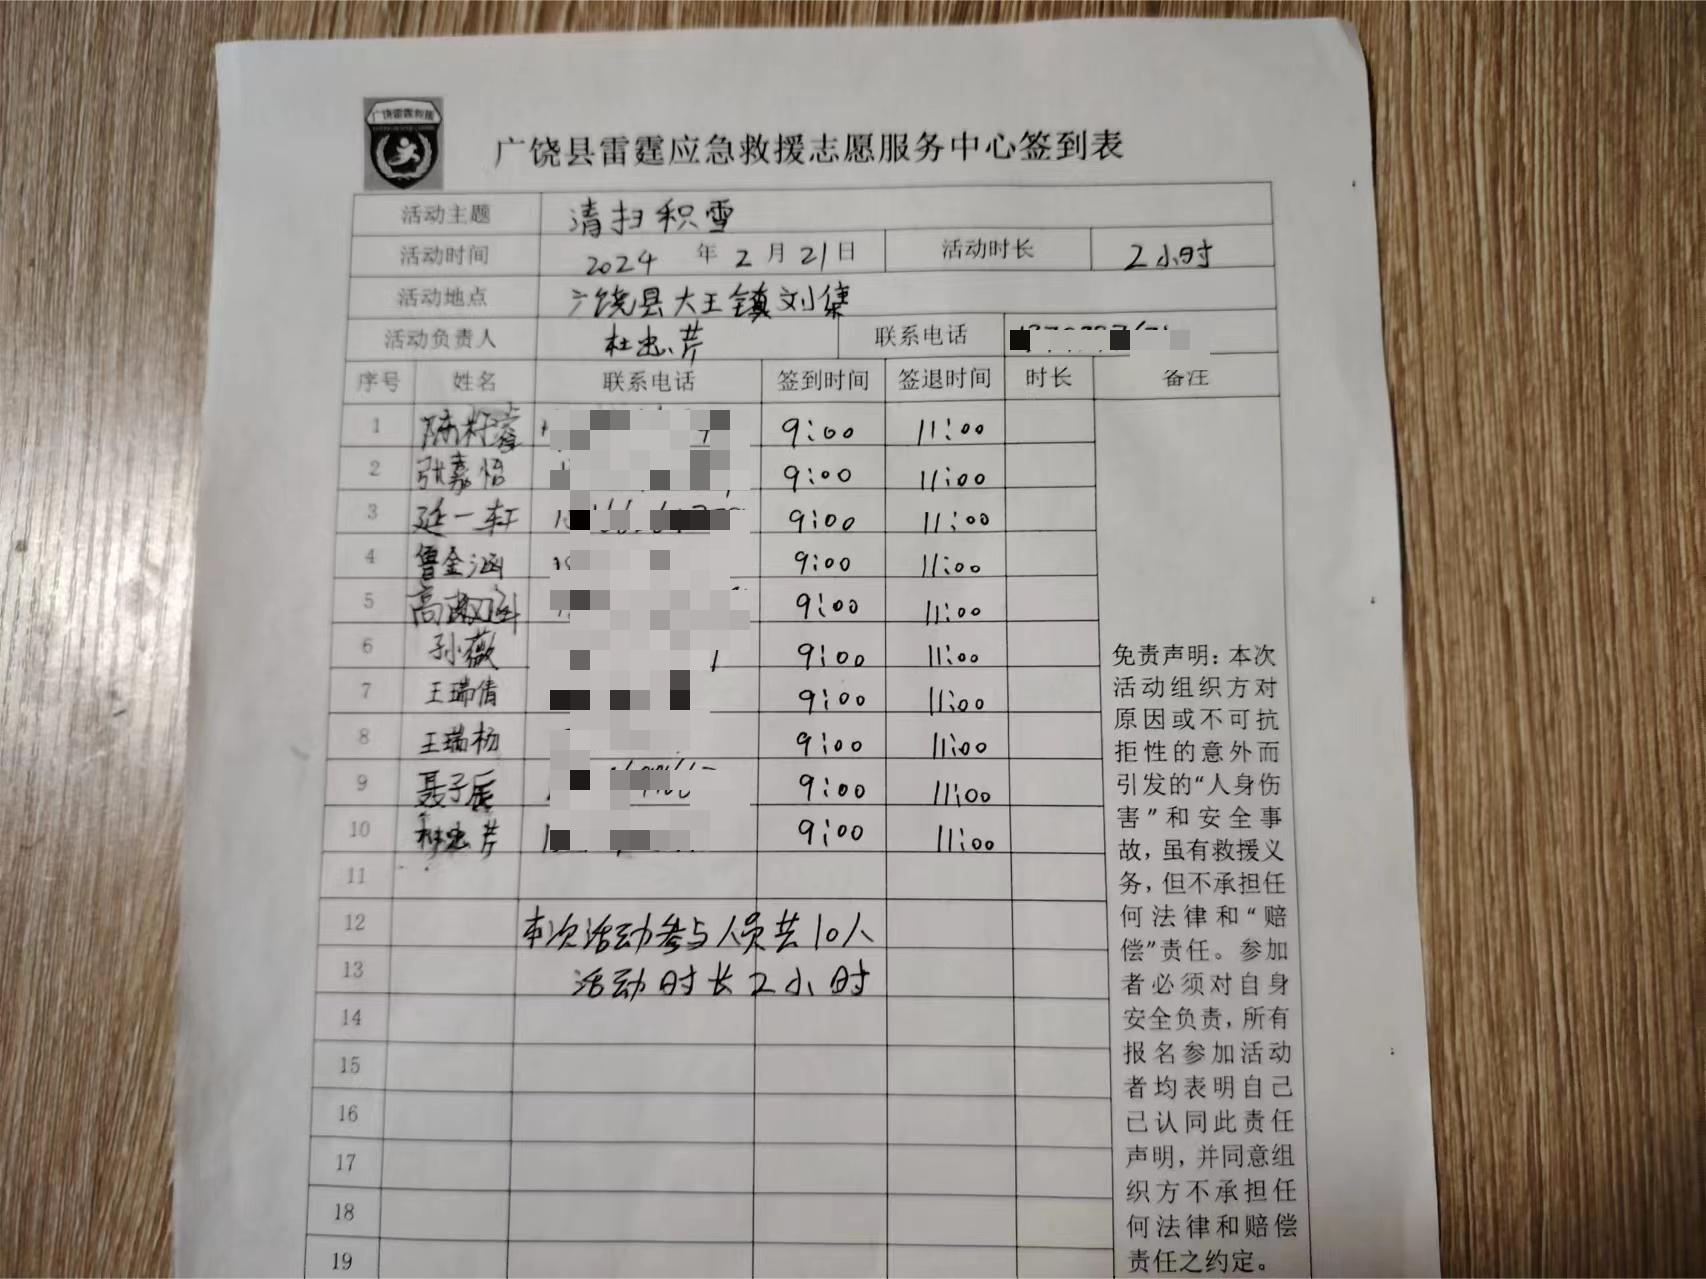 广饶雷霆救援
广饶县雷霆应急救援志愿服务中心签到表
活动主题 清扫积雪
活动时间 2024 年 2 月 21 日 活动时长 2小时
活动地点 广饶县大王镇刘集
活动负责人 杜忠芹 联系电话
序号 姓名 联系电话 签到时间 签退时间 时长 备注
1 9:00 11:00
2 张嘉怡 9:00 11:00
3 延一轩 9:00 11:00
4 鲁金涵 9:00 11:00
5 高 9:00 11:00
6 孙薇 9:00 11:00
7 王瑞倩 9:00 11:00
8 王瑞杨 9:00 11:00
9 聂子辰 9:00 11:00
10 杜忠芹 9:00 11:00
11
12 本次活动参与人员共10人
13 活动时长2小时
14
15
16
17
18
19
免责声明：本次
活动组织方对
原因或不可抗
拒性的意外而
引发的“人身伤
害”和安全事
故，虽有救援义
务，但不承担任
何法律和“赔
偿”责任。参加
者必须对自身
安全负责，所有
报名参加活动
者均表明自己
已认同此责任
声明，并同意组
织方不承担任
何法律和赔偿
责任之约定。